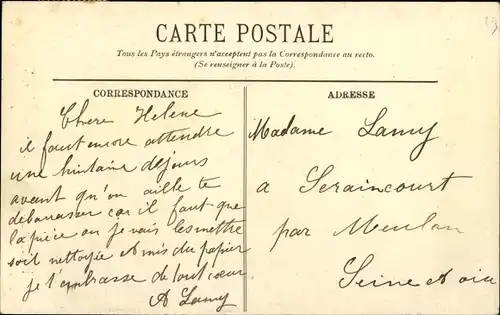 CARTE POSTALE
Tous les Pays étrangers n'acceptent pas la Correspondance au recto.
(Se renseigner à la Poste).
CORRESPONDANCE
Chere Helene
il faut encore attendre
une huitaine de jours
avant qu'on aille te
debarasser car il faut que
la pièce ou je vais les mettre
soit nettoyée et mis du papier
je t'embrasse de tout cœur
A Lamy
ADRESSE
Madame Lamy
a Seraincourt
par Meulan
Seine et oise